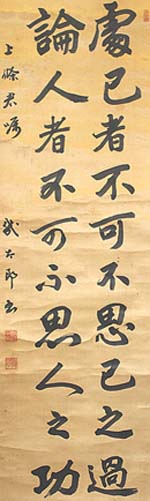 處己者不可不思己之過
論人者不可不思人之功
上條君嘱
太郎書